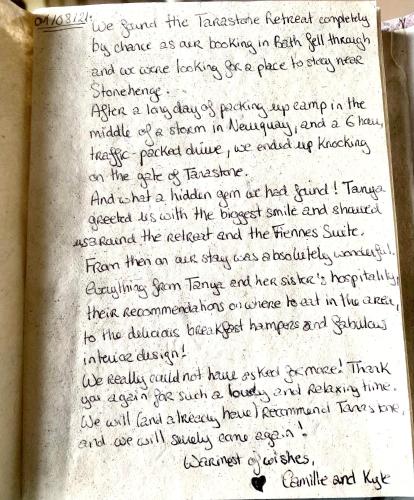 01/08/21.
We found the Tarastone Retreat completely
by chance as our booking in Bath fell through
and we were looking for a place to stay near
Stonehenge...
After a long day of packing up camp in the
middle of a storm in Newquay, and a 6 hour,
traffic-packed drive, we ended up knocking
on the gate of Tarastone.
And what a hidden gem we had found! Tanya
greeted us with the biggest smile and showed
us around the retreat and the Fiennes Suite.
From then on our stay was absolutely wonderful.
Everything from Tanya and her sister's hospitality,
their recommendations on where to eat in the area,
to the delicious breakfast hampers and fabulous
interior design!
We really could not have asked for more! Thank
you again for such a lovely and relaxing time.
We will (and already have) recommend Tarastone,
and we will surely come again!
Warmest of wishes,
♥ Camille and Kyle